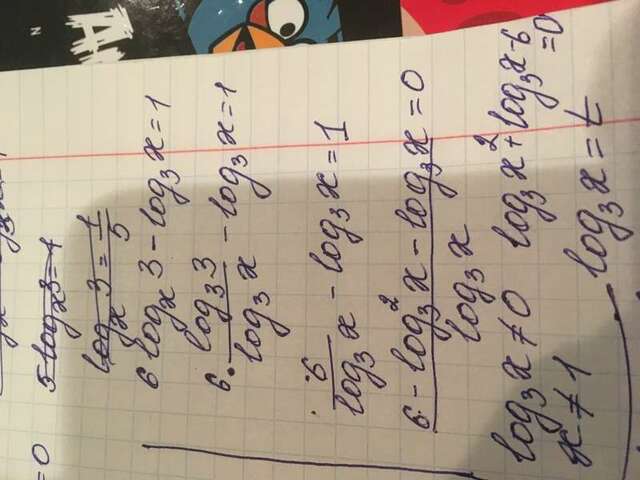 =0
5 log_x 3 = 1
log_x 3 = 1/5
6 log_x 3 - log_3 x = 1
6 · log_3 3 / log_3 x - log_3 x = 1
6 / log_3 x - log_3 x = 1
6 - log_3^2 x - log_3 x = 0
log_3 x
log_3 x ≠ 0 log_3 x^2 + log_3 x - 6
= 0
x ≠ 1
log_3 x = t
N